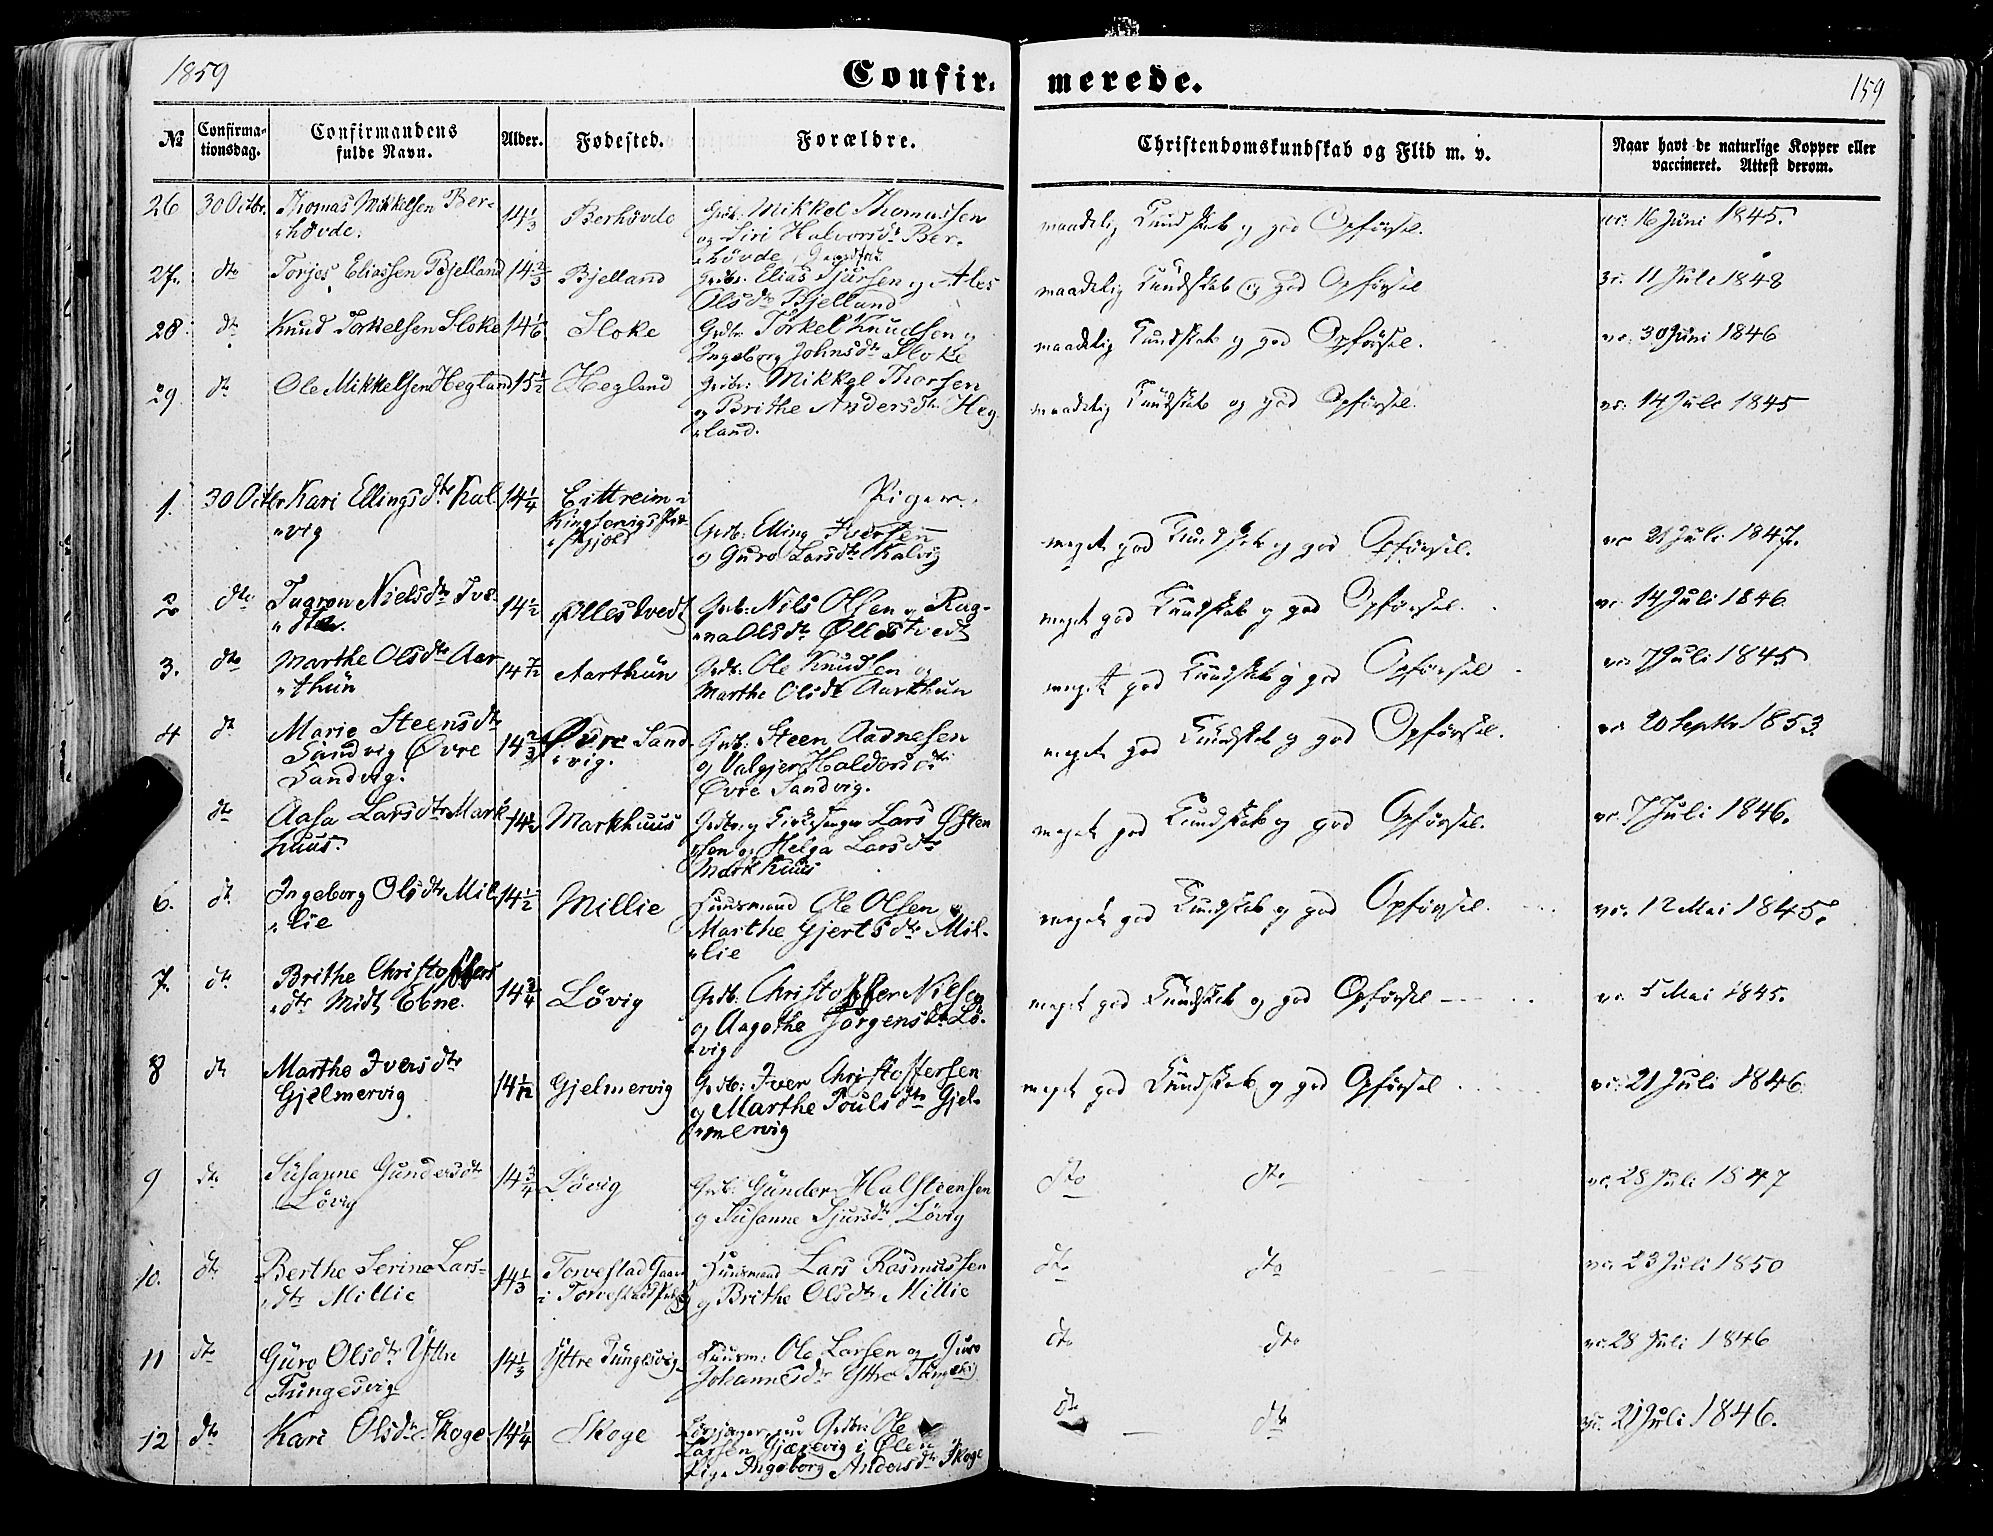 1859
Confir-
merede.
159
No
Confirma-
tionsdag.
Confirmandens
fulde Navn.
Alder.
Fødested.
Forældre.
Christendomskundskab og Flid m. v.
Naar havt de naturlige Kopper eller
vaccineret. Attest derom.
26 30 Octbr. Thomas Mikkelsen Ber-
"hövde. 14 1/3 Berhövde Grdb: Mikkel Thomassen
og Siri Halvorsdtr Ber-
"hövde
maadelig Kundskab og god Opførsel. vc. 16 Juni 1845.
27. dto Torjes Eliassen Bjelland 14 2/3 Bjelland Grdbr. Elias Sjursen og Ales
Olsdtr Bjelland
maadelig Kundskab og god Opførsel vc. 11 Juli 1848
28. dto Knud Torkelsen Sloke 14 1/6 Sloke Grdbr. Torkel Knudsen og
Ingeborg Johnsdtr Sloke
maadelig Kundskab og god Opførsel. vc. 30 Juni 1846
29 dto Ole Mikkelsen Hegland 15 1/2 Hegland Grdbr: Mikkel Thorsen
og Brithe Andersdtr Heg
"land.
maadelig Kundskab og god Opførsel. vc. 14 Juli 1845
Piger.
1. 30 Octbr Kari Ellingsdtr Kal
"vig 14 1/4 Eittreim i
Kingservigs
Grdb: Elling Iversen
og Guro Larsdtr Kalvig
meget god Kundskab og god Opførsel. vc 21 Juli 1847.
2 dto Nielsdtr
14 1/2 Øllestvedt Grdb: Nils Olsen og Rag-
"na Olsdtr Øllestvedt
meget god Kundskab og god Opførsel. vc. 14 Juli 1846
3. dto Marthe Olsdtr Aar
"thun 14 Aarthun Grdb: Ole Knudsen og
Marthe Olsdtr Aarthun
meget god Kundskab og god Opførsel vc. 7 Juli 1845
4 dto Marie Steensdtr
Sandvig Øvre
Sandvig. 14 2/3 Øvre Sand
"vig. Grdb: Steen Aadnesen
og Valgjer Haldorsdtr
Øvre Sandvig.
meget god Kundskab og god Opførsel. vc. 20 Septbr 1853.
dto Aasa Larsdtr Mark
huus. 14 1/2 Markhuus Grdbr. og Kirkesanger Lars Østen
"sen og Helga Larsdtr
Markhuus
meget god Kundskab og god Opførsel. vc. 7 Juli 1846.
6. dto Ingeborg Olsdtr Mil
"lie 14 1/2 Millie Huusmand Ole Olsen og
Marthe Gjertsdtr Mil-
"lie
meget god Kundskab og god Opførsel. vc. 12 Mai 1845.
7. dto Brithe Christoffers
"dtr Midt Ebne. 14 3/4 Lövig Grdb: Christoffer Nielsen
og Aagothe Jörgensdtr Lö-
"vig
meget god Kundskab og god Opførsel vc. 5 Mai 1845.
8 dto Marthe Iversdtr
Gjelmervig 14 1/12 Gjelmervig Grdb: Iver Christoffersen
og Marthe Poulsdtr Gjel-
"mervig
meget god Kundskab og god Opførsel vc. 21 Juli 1846.
9 dto Susanne Gundersdtr
Lövig 14 3/4 Lövig Grdb: Gunder Halsteensen
og Susanne Sjursdtr Lövig
dto dto vc. 28 Juli 1847
10. dto Berthe Serine Lars-
"dtr Millie 14 1/3 Torvestad
i Torvestad
Huusmand Lars Rasmussen
og Brithe Olsdtr Millie
dto dto vc. 23 Juli 1850
11 dto Guro Olsdtr Yttre
Tungesvig 14 1/3 Yttre Tungesvig Huusm: Ole Larsen og Guro
Johannesdtr Yttre Tungesvig
dto dto vc. 28 Juli 1846
12 dto Kari Olsdtr Skoge 14 1/4 Skoge Grdbr: Ole
Larsen Gjærevig i Ølen
Pige Ingeborg Andersdtr Skoge
dto dto vc. 21 Juli 1846.